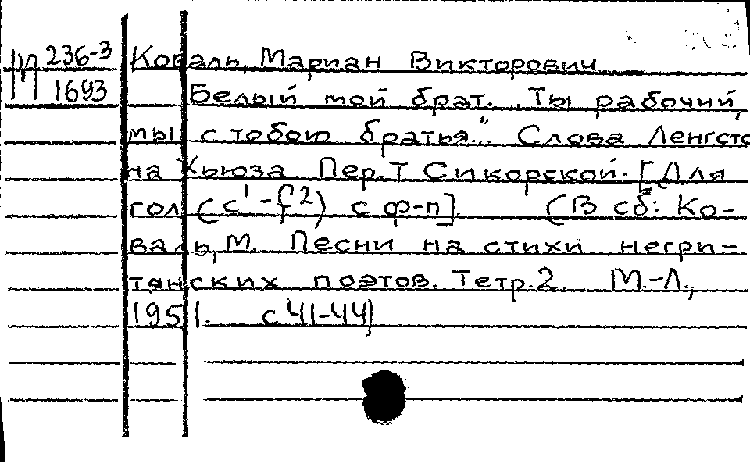 М 236-3 Коваль, Мариан Викторович
1693 Белый мой брат. "Ты рабочий,
мы с тобою братья". Слова Ленгсто
на Хьюза Пер. Т Сикорской. [Для
гол (с¹-f²) с ф-п]. (В сб: Ко-
валь, М. Песни на стихи негри-
тянских поэтов. Тетр. 2. М-Л.,
1951. с 41-44)